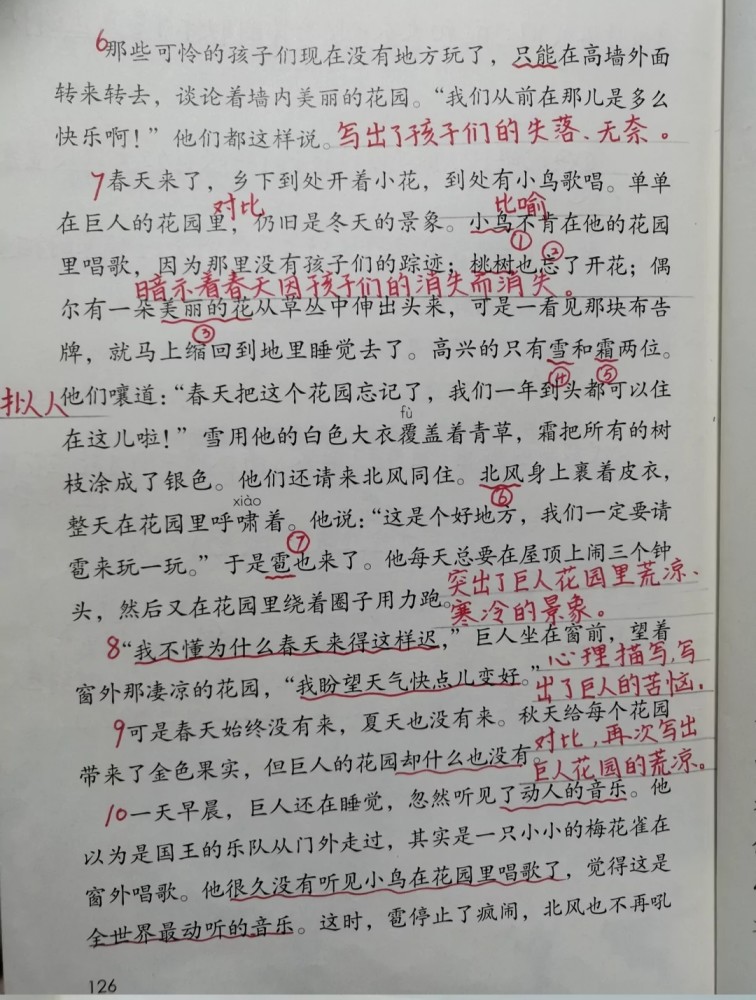 6那些可怜的孩子们现在没有地方玩了，只能在高墙外面
转来转去，谈论着墙内美丽的花园。“我们从前在那儿是多么
快乐啊！”他们都这样说。写出了孩子们的失落、无奈。
7春天来了，乡下到处开着小花，到处有小鸟歌唱。单单
对比 比喻
在巨人的花园里，仍旧是冬天的景象。小鸟不肯在他的花园
① ②
里唱歌，因为那里没有孩子们的踪迹；桃树也忘了开花；偶
暗示着春天因孩子们的消失而消失。
尔有一朵美丽的花从草丛中伸出头来，可是一看见那块布告
③
牌，就马上缩回到地里睡觉去了。高兴的只有雪和霜两位。
④ ⑤
拟人 他们嚷道：“春天把这个花园忘记了，我们一年到头都可以住
fù
在这儿啦！”雪用他的白色大衣覆盖着青草，霜把所有的树
枝涂成了银色。他们还请来北风同住。北风身上裹着皮衣，
xiào ⑥
整天在花园里呼啸着。他说：“这是个好地方，我们一定要请
⑦
雹来玩一玩。”于是雹也来了。他每天总要在屋顶上闹三个钟
突出了巨人花园里荒凉、
头，然后又在花园里绕着圈子用力跑。寒冷的景象。
8“我不懂为什么春天来得这样迟，”巨人坐在窗前，望着
窗外那凄凉的花园，“我盼望天气快点儿变好。”心理描写，写
出了巨人的苦恼。
9可是春天始终没有来，夏天也没有来。秋天给每个花园
带来了金色果实，但巨人的花园却什么也没有。对比，再次写出
巨人花园的荒凉。
10一天早晨，巨人还在睡觉，忽然听见了动人的音乐。他
以为是国王的乐队从门外走过，其实是一只小小的梅花雀在
窗外唱歌。他很久没有听见小鸟在花园里唱歌了，觉得这是
全世界最动听的音乐。这时，雹停止了疯闹，北风也不再吼
126